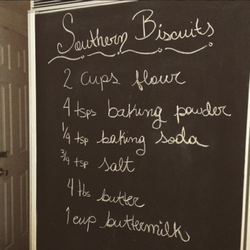 Southern Biscuits
2 cups flour
4 tsps baking powder
1/4 tsp baking soda
3/4 tsp salt
4 tbs butter
1 cup buttermilk